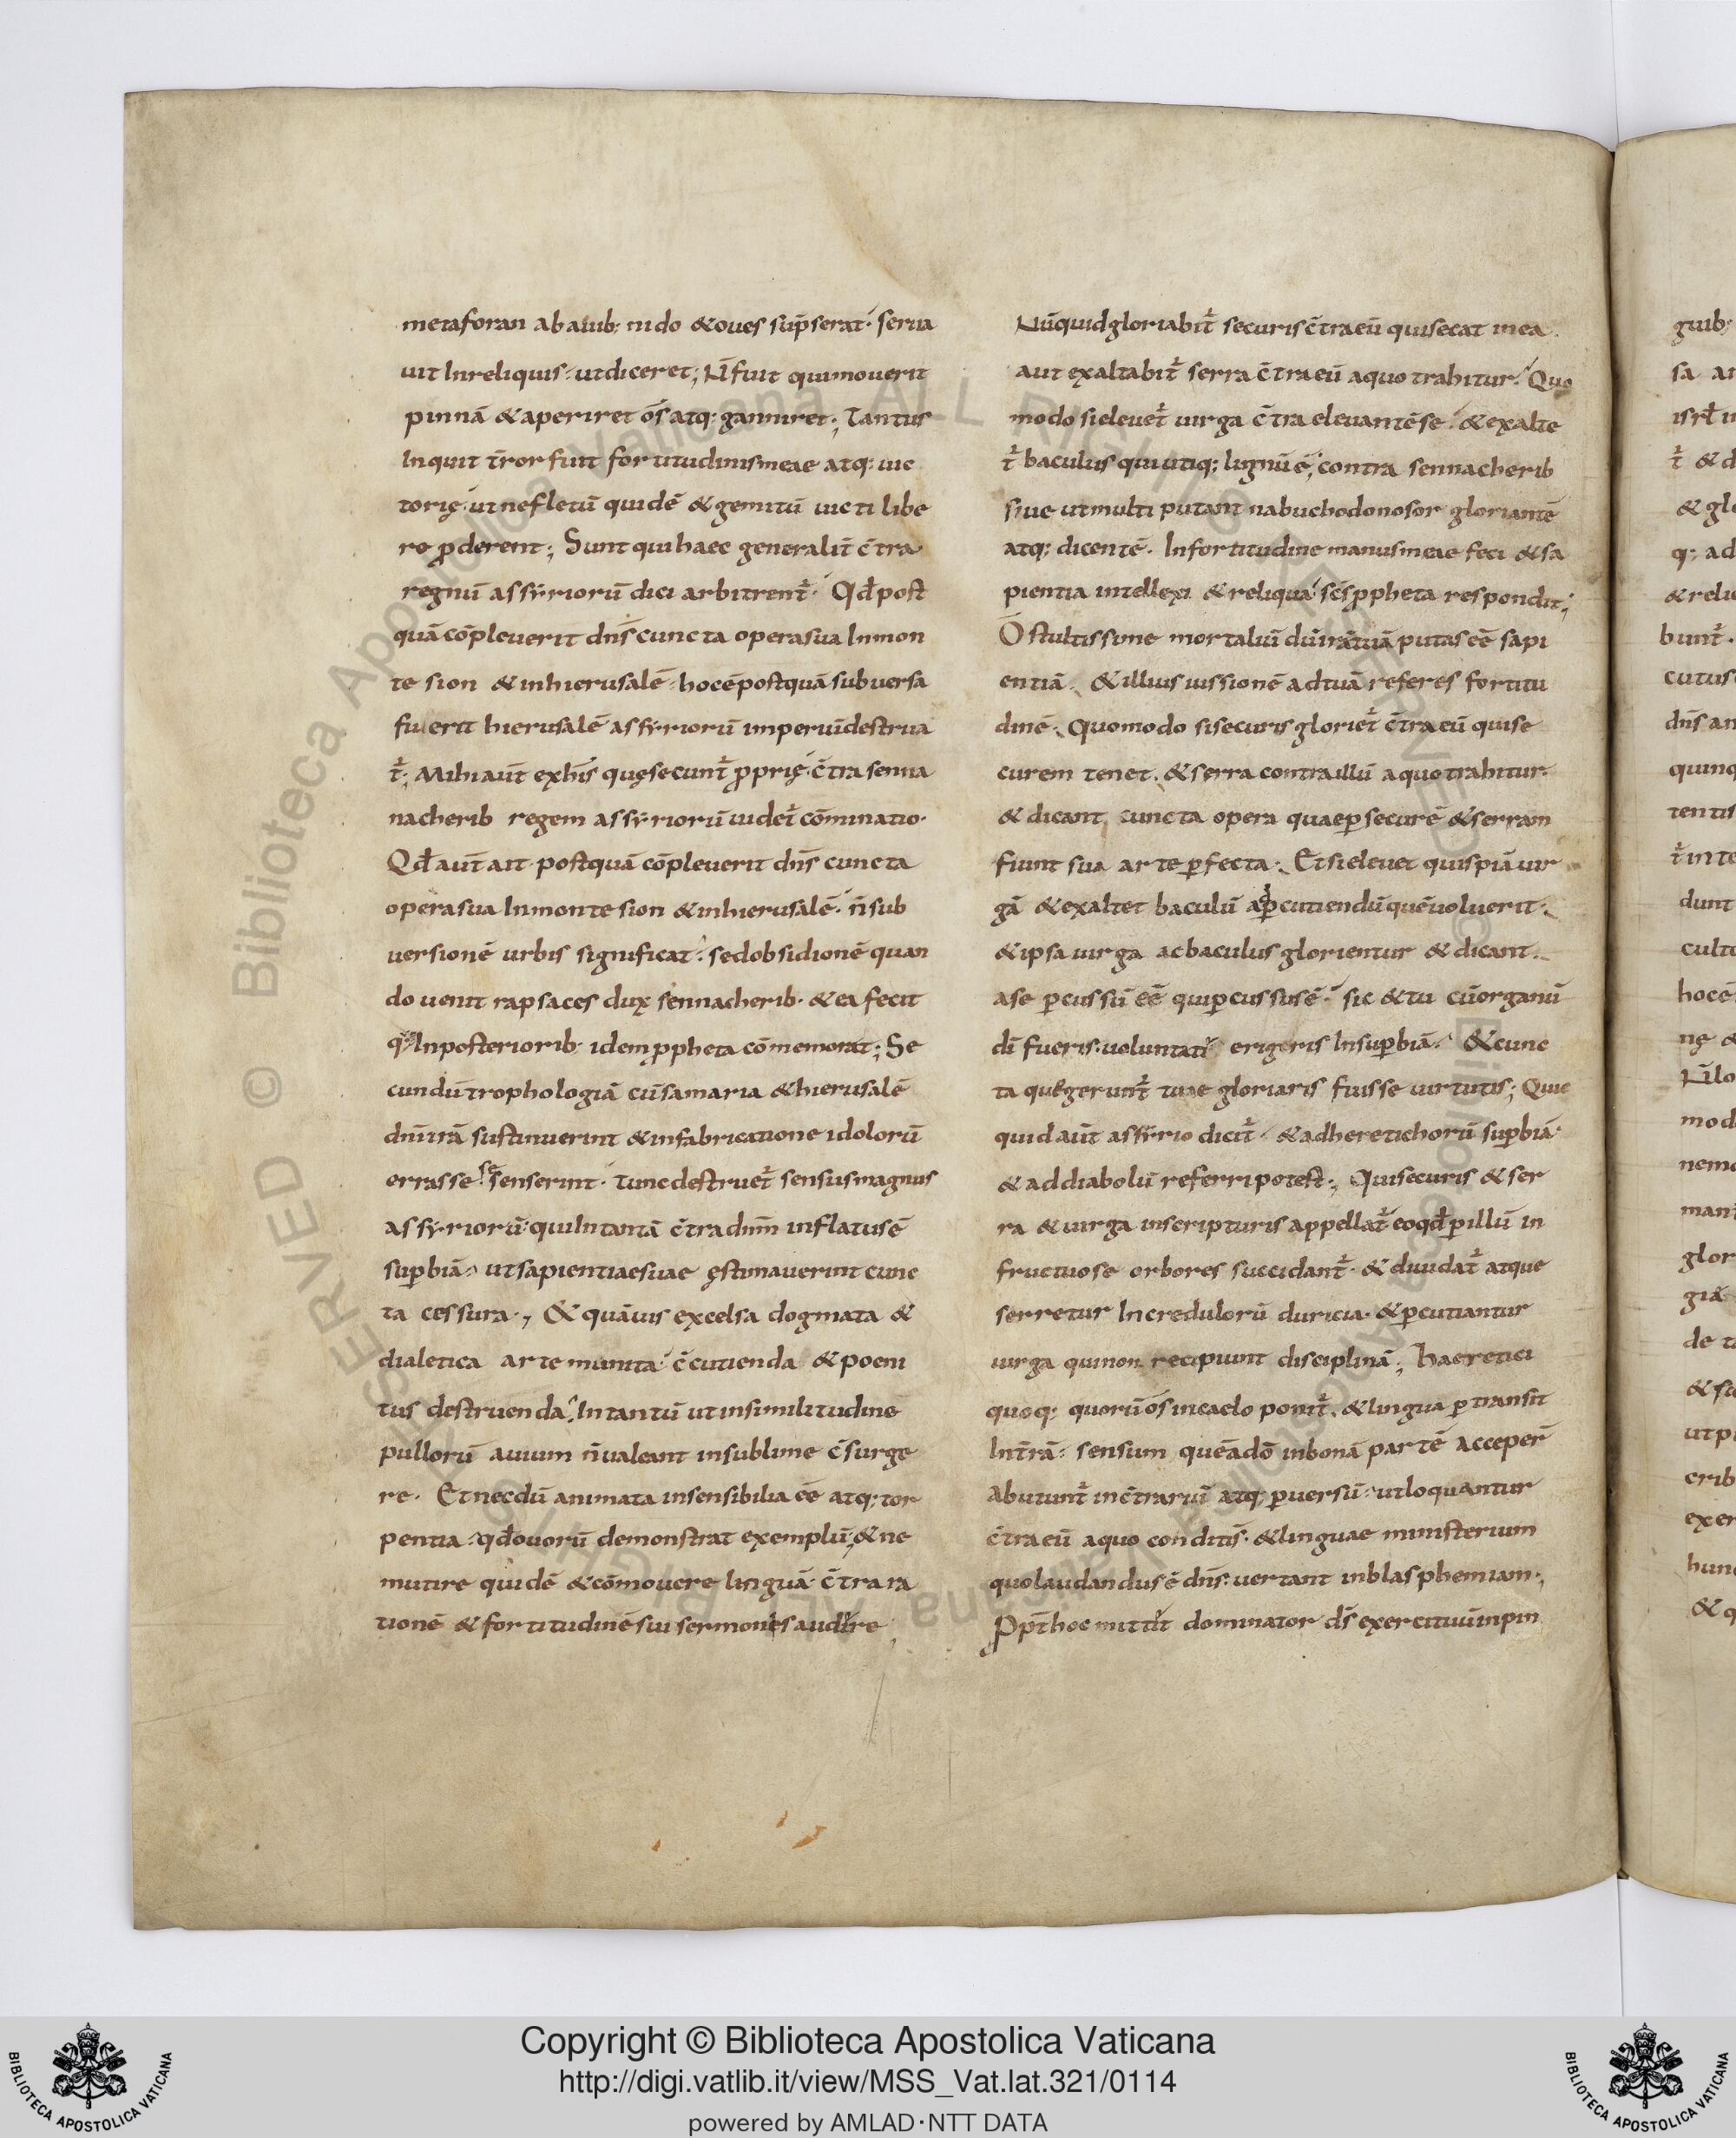 metaforan ab auib; nido & oues sūpserat· serua
uit In reliquis· ut diceret; N̄ fuit qui mouerit
pinnā & aperiret ōs atq: ganniret; Tantus
Inquit t̄ror fuit fortitudinis meae atq: uic
torię· ut ne fletū quidē & gemitū uicti libe
re ꝓderent; Sunt qui haec generalit̄ c̄tra
regnū assyriorū dici arbitrent᷑· Qd̄ post
quā cōpleuerit dn̄s cuncta opera sua In mon
te sion & in hierusalē· hoc ē postquā subuersa
fuerit hierusalē assyriorū imperiū destrua
t᷑; Mihi aūt ex his quę secunt᷑ ꝓprię· c̄tra senna
nacherib regem assyriorū uidet᷑ cōminatio·
Qd̄ aūt ait postquā cōpleuerit dn̄s cuncta
opera sua In monte sion & in hierusalē· n̄ sub
uersionē urbis significat· sed obsidionē quan
do uenit rapsaces dux sennacherib· & ea fecit
In posteriorib· idem ꝓpheta cōmemorat; Se
cundū trophologiā cū samaria & hierusalē
dn̄i irā sustinuerint & in fabricatione idolorū
errasse se senserint· Tunc destruet᷑ sensus magnus
assyriorū· qui In tantā c̄tra dn̄m inflatus ē
suꝑbiā· ut sapientiae suae ęstimauerint cunc
ta cessura·, & quāuis excelsa dogmata &
dialetica arte munita· c̄cutienda & poeni
tus destruenda; In tantū ut in similitudine
pullorū auium n̄ ualeant in sublime c̄surge
re· Et necdū animata insensibilia eē atq; tor
pentia· qd̄ ouorū demonstrat exemplū, & ne
mutire quidē & cōmouere linguā c̄tra ra
tionē & fortitudinē sui sermonis audire
Nūquid gloriabit᷑ securis c̄tra eū qui secat in ea
aut exaltabit᷑ serra c̄tra eū a quo trahitur· Quo
modo si eleuet᷑ uirga c̄tra eleuantē se· & exalte
t᷑ baculus qui utiq; lignū ē; contra sennacherib
siue ut multi putant nabuchodonosor gloriantē
atq; dicentē· In fortitudine manus meae feci & sa
pientia intellexi & reliqua· sc̄s ꝓpheta respondit;
O stultissime mortaliū dū irā tuā putas eē sapi
entiā· & illius iussionē ad tuā referes fortitu
dinē· Quomodo si securis gloriet᷑ c̄tra eū qui se
curem tenet· & serra contra illū a quo trahitur·
& dicant cuncta opera quae ꝑ securē & serram
fiunt sua arte ꝑfecta· Et si eleuet quispiā uir
gā & exaltet baculū ad ꝑcutiendū quē uoluerit·
& ipsa uirga ac baculus glorientur & dicant·
a se ꝑcussū eē qui ꝑcussus ē· sic & tu cū organū
dī fueris· uoluntati erigeris In suꝑbiā· & cunc
ta que gerunt᷑ tuae gloriaris fuisse uirtutis; Quic
quid aūt assyrio dicit᷑· & ad heretichorū suꝑbiā·
& ad diabolū referri potest; Qui securis & ser
ra & uirga in scripturis appellat᷑ eo qd̄ ꝑ illū in
fructuose orbores succidant᷑· & diuidat᷑ atque
serretur Incredulorū duricia· & ꝑcutiantur
uirga qui non recipiunt disciplinā; Haeretici
quoq; quorū os in caelo ponit᷑· & lingua ꝑtransit
In t̄rā· sensum quēadmodō in bonā partē acceper̄
abutunt᷑ in c̄trariū atq; ꝑuersū· ut loquantur
c̄tra eū a quo conditi s̄· & linguae ministerium
quo laudandus ē dn̄s· uertant in blasphemiam;
Ppt̄ hoc mittit dominator d̄s exercituū in pin
Copyright © Biblioteca Apostolica Vaticana
http://digi.vatlib.it/view/MSS_Vat.lat.321/0114
powered by AMLAD·NTT DATA
BIBLIOTECA APOSTOLICA VATICANA
BIBLIOTECA APOSTOLICA VATICANA